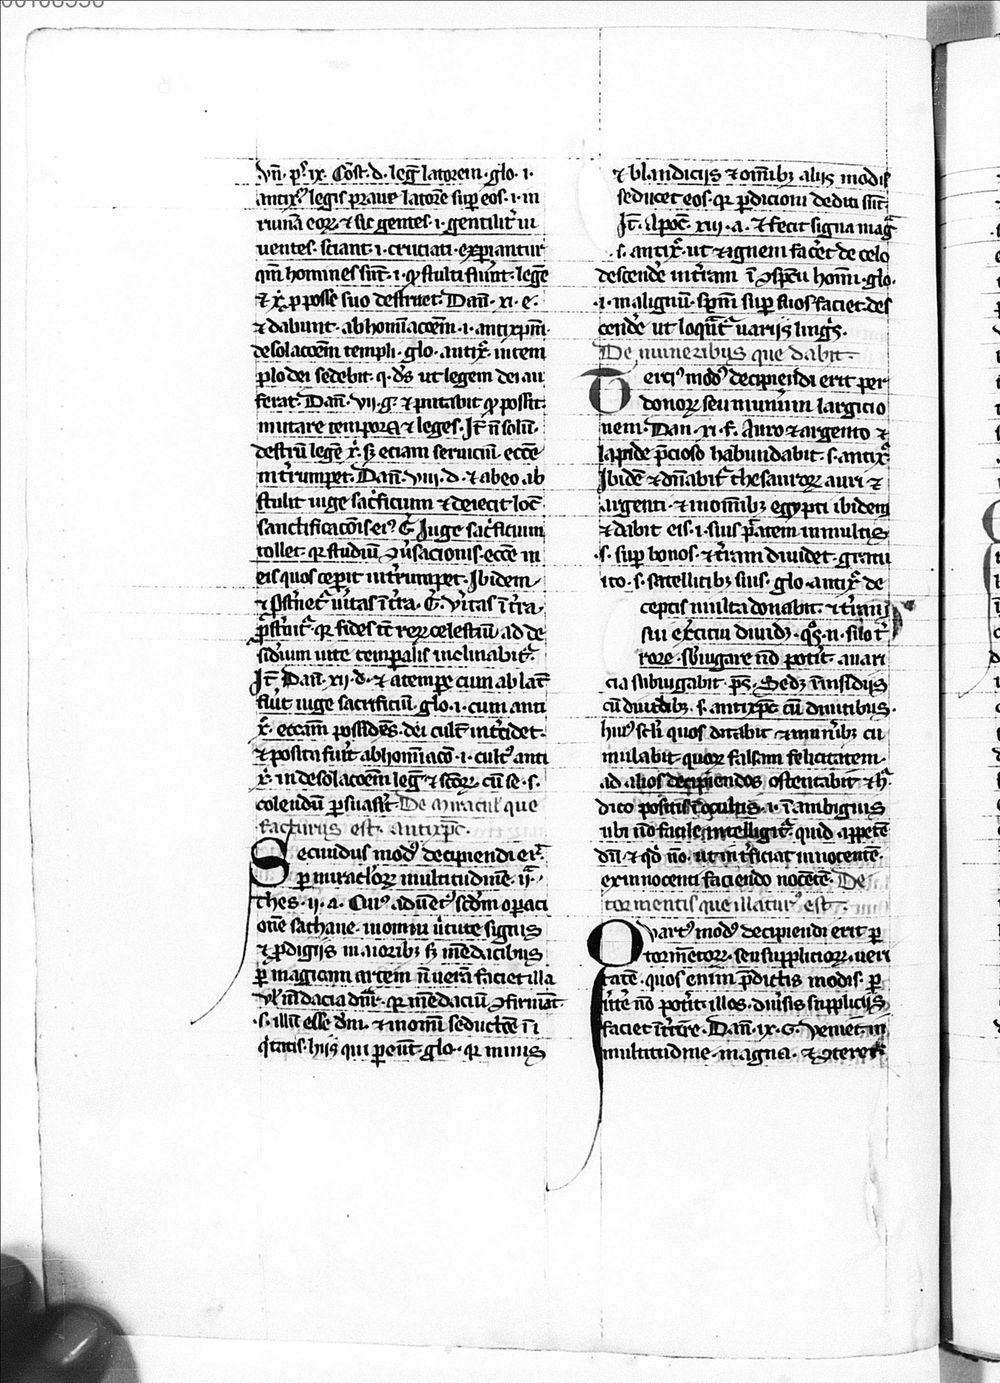 Vn̄. ps̄. ix. Cōst. d. leḡ latorem. glo. i.
antix̄ᵒ legis praue latorē suꝑ eos. i. in
ruinā eoꝝ. ⁊ sic gentes. i. gentilit̄ ui
uentes. sciant. i. cruciati. experiantur
qm̄ homines sūt. i. ꝙ stulti fūint. legē
⁊ x̄. ꝓ posse suo destruet. Dan̄. xi. e.
⁊ dabunt. abhominacōem. i. antixpm̄.
desolacōem templi. glo. antix̄. in tem
plo dei sedebit. q. d̄s ut legem dei au
ferat. Dan̄. vii. g. ⁊ putabit ꝙ possit
mutare tempora ⁊ leges. It̄ n̄ solū.
destruī legē x̄. sꝫ eciam seruiciū ecc̄e
int̄rumpet. Dan̄. viii. d. ⁊ ab eo ab
stulit iuge sac̄ficium ⁊ deiecit loc̄
sanctificacōis eiꝰ. G̅. Iuge sac̄ficium
tollet. qꝛ studiū ꝯūsacionis ecc̄e in
eis quos ceperit int̄rumpet. Ibidem
⁊ ꝓst̄net̄ ūitas ī t̄ra. G̅. Vītas ī t̄ra
ꝓst̄nit̄. qꝛ fides it̄ reꝝ celestiū ad de
sid̄ium uite temꝑalis inclinabit̄.
It̄ Dan̄. xii. d. ⁊ a tempe cum ablat̄
fūit iuge sacrificiū. glo. i. cum anti
x̄. eccām possidēs. dei cult̄ int̄cidet.
⁊ posita fūit abhomīacō. i. cultꝰ anti
x̄. in desolacōem leḡ ⁊ sc̄oꝝ. cū se. s.
colendū ꝑsuas̄it. De miracul̄ que
facturus est. antixpc̄.
Secundus modꝰ decipiendi er̄.
ꝑ miracl̄oꝝ multitudinē. ii.
thes. ii. a. Cuiꝰ aduētꝰ scdm̄ oꝑaci
onē sathane. in omni ūtute signis
⁊ ꝓdigiis in aioribꝫ sꝫ mēdacibus
ꝑ magicam artem n̄ uerā faciet illa
Vl̄ mēdacia dnr̄. qꝛ mēdaciū ꝯfirmāt
.s. illū esse dm̄. ⁊ in omī seducc̄oe īi
q̄tatis. hiis qui ꝑeūt. glo. qꝛ minis
⁊ blandiciis ⁊ om̄ibꝫ aliis modis
seducet eos. qꝛ ꝑdicioni dediti sūt.
It̄. Apoc̄. xiii. a. ⁊ fecit signa maḡ
.s. antix̄. ut ⁊ ignem fac̄et de celo
descende in t̄ram ī ꝯspc̄u homī. glo.
.i. malignū spm̄ suꝑ suos faciet des
cende ut loquāt̄ uariis linḡs.
De muneribus que dabit.
Terciꝰ modꝰ decipiendi erit per
donoꝝ seu munerum largicio
nem. Dan. xi. f. Auro ⁊ argento ⁊
lapide p̄cioso habundabit. s. antix̄
Ibidē ⁊ dn̄abit̄ thesauroꝝ auri ⁊
argenti. ⁊ in om̄ibꝫ egypti ibidem
⁊ dabit eis. i. suis p̄tatem in multis
.s. suꝑ bonos. ⁊ t̄ram diuidet. gratu
ito. s. satellitibꝫ suis. glo. antix̄ de
ceptis multa donabit. ⁊ t̄ram
sui ex̄citui diuidꝫ. qͦs. n. suo t̄
rore. sb̄iugare nō pot̄it. auari
cia subiugabit. ps̄. Sedꝫ ī insidiis
cū diuitibꝫ. s. antixpc̄ cū diuitibus.
huiꝰ sc̄li quos ditabit ⁊ mun̄ibꝫ cu
mulabit. quoꝝ falsam felicitatem.
ad alios decipiendos ostentabit. ⁊ h̄
dico positis ī ocultis. i. ī ambiguis
ubi nō facile intelligit̄. quid appetē
dū. ⁊ qd̄ nō. ut int̄ficiat innocentē.
ex innocenti faciendo nocētē. De
tormentis que illaturꝰ est.
Qvartꝰ modꝰ decipiendi erit ꝑ
tormētoꝝ. seu suppliciorꝝ. ueri
tatē. quos enim p̄dictis modis. ꝑ
ūt̄e nō pot̄it. illos. diūsis suppliciis
faciet īt̄ire. Dan̄. ix. G. Veniet in
multitudine. magna. ⁊ ꝯteret̄